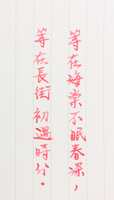 等在海棠不眠春深，
等在長街初遇時分。